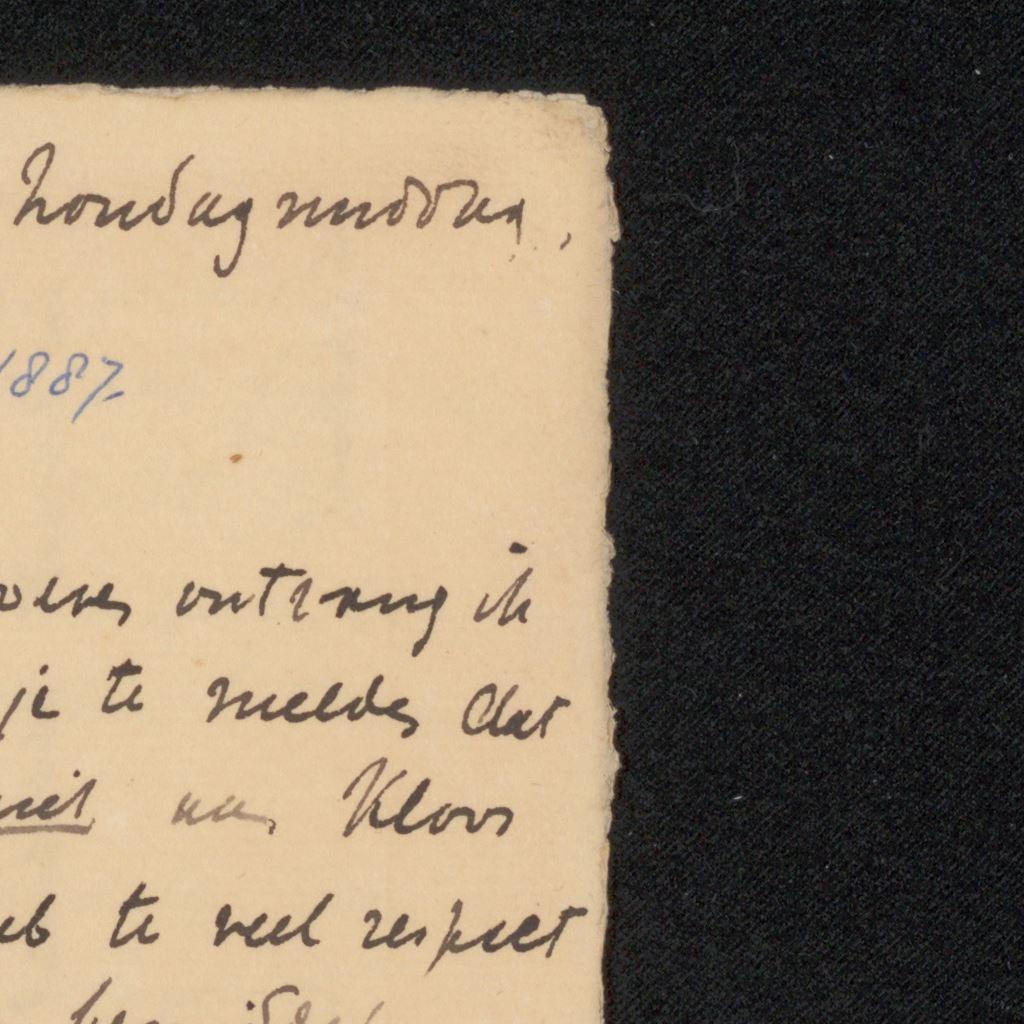 Zondagmiddag,
1887
ontvang ik
je te melden dat
niet aan Kloos
heb te veel respect